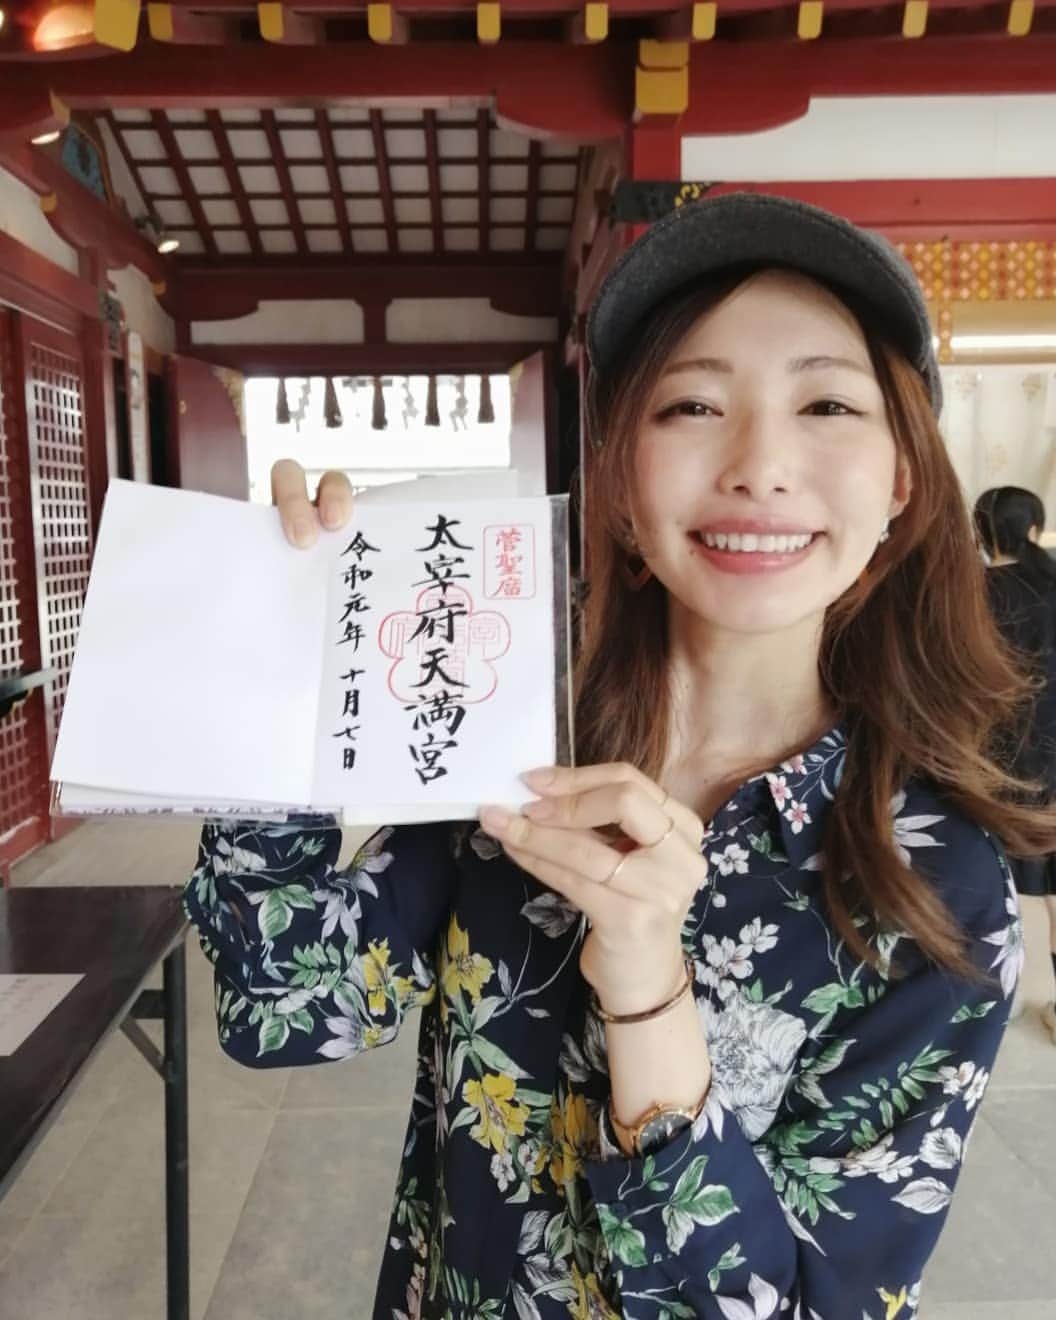 菅聖庿
太宰府天満宮
令和元年十月七日